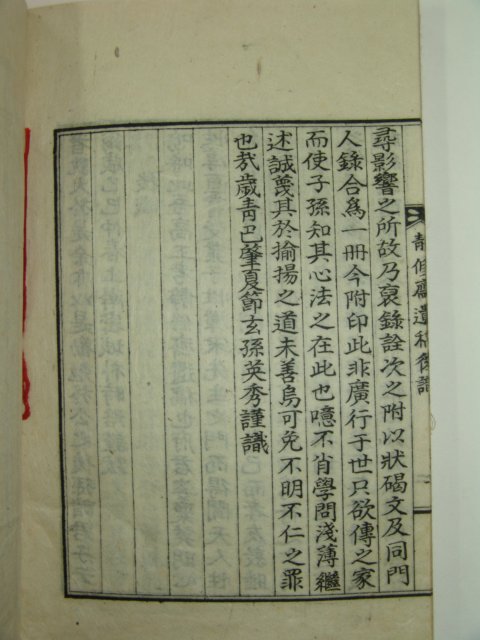 靜修齋遺稿後識
尋影響之所故乃裒錄詮次之附以狀碣文及同門
人錄合爲一冊今附印此非廣行于世只欲傳之家
而使子孫知其心法之在此也噫不肖學問淺薄繼
述誠蔑其於揄揚之道未善烏可免不明不仁之罪
也㢤歲靑巳肇夏節玄孫英秀謹識